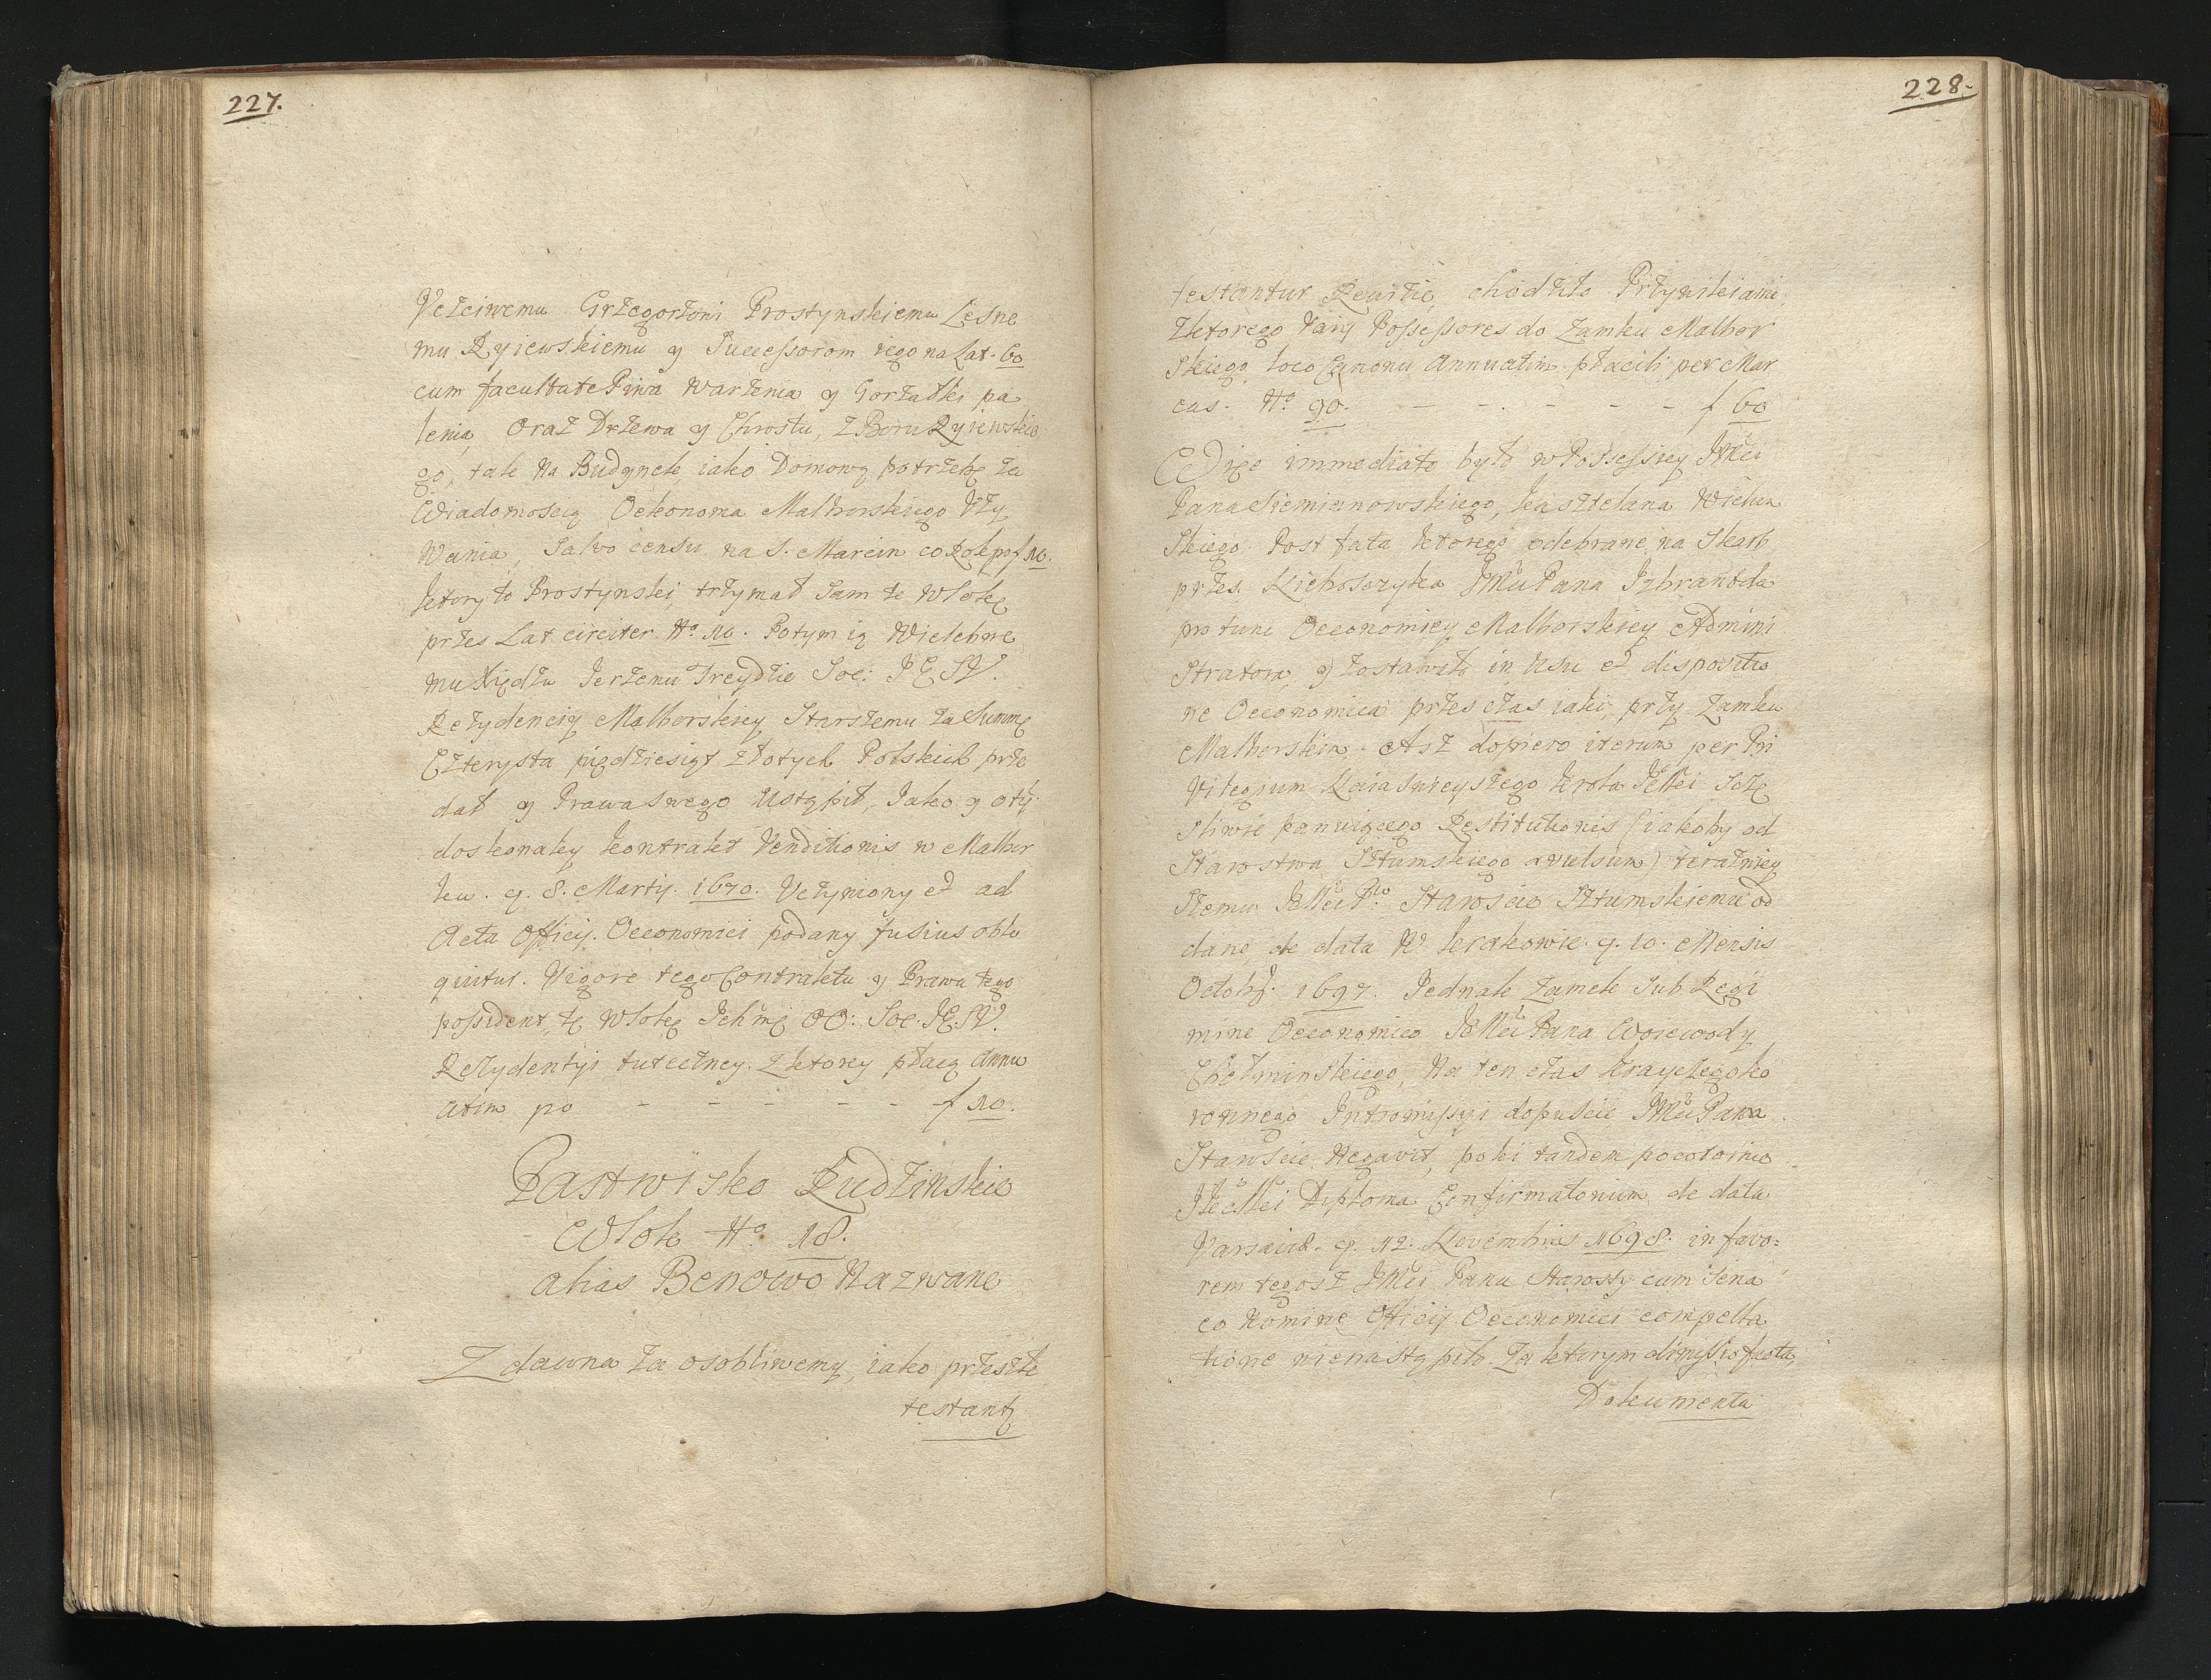 227.
Vczciwemu Grzegorzoni Prostynskiemu Lesne
mu Ryiewskiemu y Successorom iego na Lat. 60
cum facultate Piwa Warzenia y Gorzałki pa
lenia, Oraz Drzewa y Chrostu, z Boru Ryiewskie
go, tak na Budynek iako Domową potrzebę za
Wiadomoscią Oekonoma Malborskiego Vży
wania, Salvo censu na S. Marcin co Rok po f 10.
ktory to Prostynski, trzymał Sam te Włokę
przes Lat circiter No 10. Potym ią Wielebne
mu Xiędzu Jerzemu Treydzie Soc: JESV.
Rezydencią Malborskiey Starszemu za Summę
Czterysta piędziesiąt złotych Polskich prze
dał y Prawa swego Ustąpił, Jako y o tý
doskonały kontrakt Venditionis w Malbor
ku. q. 8. Martij. 1670. Vczyniony et ad
Acta Officij. Oeconomici podany fusius oblo
quitur. Vigore tego Contraktu y Prawa tego
possident, tę Włokę Ichmę OO: Soc. JESV.
Rezydentyi tuteczney. z ktorey płacą Annu
atim po - - - - - f 10.
Pastwisko Rudzinskie
Włok No 18.
alias Benowo Nazwane
Z dawna za osobliwemy, iako przeszłe
testantq
228.
testantur Rewizie, chodziło Przywileiami
z ktorego dáią Possessores do Zamku Malbor
skiego loco Canonu Annuatim płacili per Mar
cas. No 90. - - - - - f 60
Więc immediate było w Possessyey JMci
Pana Siemianowskiego, kasztelana Wielun
skiego. Post fata ktorego odebrane na Skarb
przes. Nieboszczyka JMci Pana Izbrandta
pro tunc Oeconomiey Malborskiey Admini
stratora, y zostawało in Usu et dispositio
ne Oeconomica przes czas iaki, przy Zamku
Malborskim. Asz dopiero iterum per Pri
vilegium Naiasnieyszego krola JeMci Szczę
sliwie panuiącego Restitutionis (iakoby od
Starostwa Sztumskiego avulsum) teraznie
szemu JeMci Po. Staroscie Sztumskiemu od
dane, de data w krakowie q. 10. Mensis
Octobr. 1697. Jednak Zamek Sub Regi
mine Oeconomico JeMci Pana Woiewody
Chełminskiego, Na ten czas kraycżego ko
ronnego Intromissyi dopuscic JMci Pana
Staroscie Negavit, poki tandem powtornio
JKcMci Diploma Confirmatorium de data
Varsavie. q. 12. Novembris 1698. in favo=
rem tegosz JMci Pana Starosty cum sena
eo Nomine Officij Oeconomici compella
tione nienastąpiło. Za ktorym dimissio facta,
Dokumenta